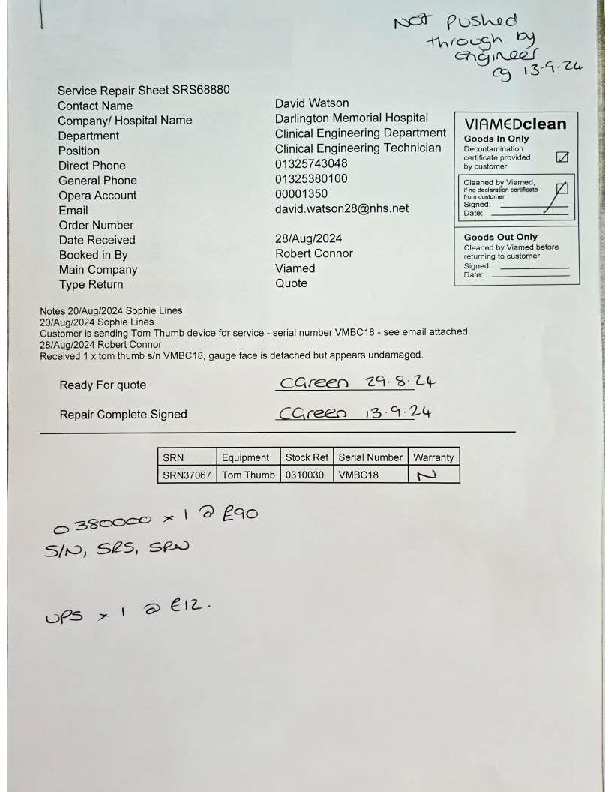 Not Pushed
through by
engineer
cg 13-9-24
Service Repair Sheet SRS68880
Contact Name David Watson
Company/ Hospital Name Darlington Memorial Hospital
Department Clinical Engineering Department
Position Clinical Engineering Technician
Direct Phone 01325743048
General Phone 01325380100
Opera Account 00001350
Email david.watson28@nhs.net
Order Number
Date Received 28/Aug/2024
Booked in By Robert Connor
Main Company Viamed
Type Return Quote
VIAMEDclean
Goods In Only
Decontamination
certificate provided
by customer
Cleaned by Viamed,
if no declaration certificate
from customer
Signed:
Date:
Goods Out Only
Cleaned by Viamed before
returning to customer
Signed:
Date:
Notes 20/Aug/2024 Sophie Lines
20/Aug/2024 Sophie Lines
Customer is sending Tom Thumb device for service - serial number VMBC18 - see email attached
28/Aug/2024 Robert Connor
Received 1 x tom thumb s/n VMBC18, gauge face is detached but appears undamaged.
Ready For quote CGreen 29.8.24
Repair Complete Signed CGreen 13.9.24
SRN Equipment Stock Ref Serial Number Warranty
SRN37067 Tom Thumb 0310030 VMBC18 N
0380000 x 1 @ £90
S/N, SRS, SRN
UPS x 1 @ £12.